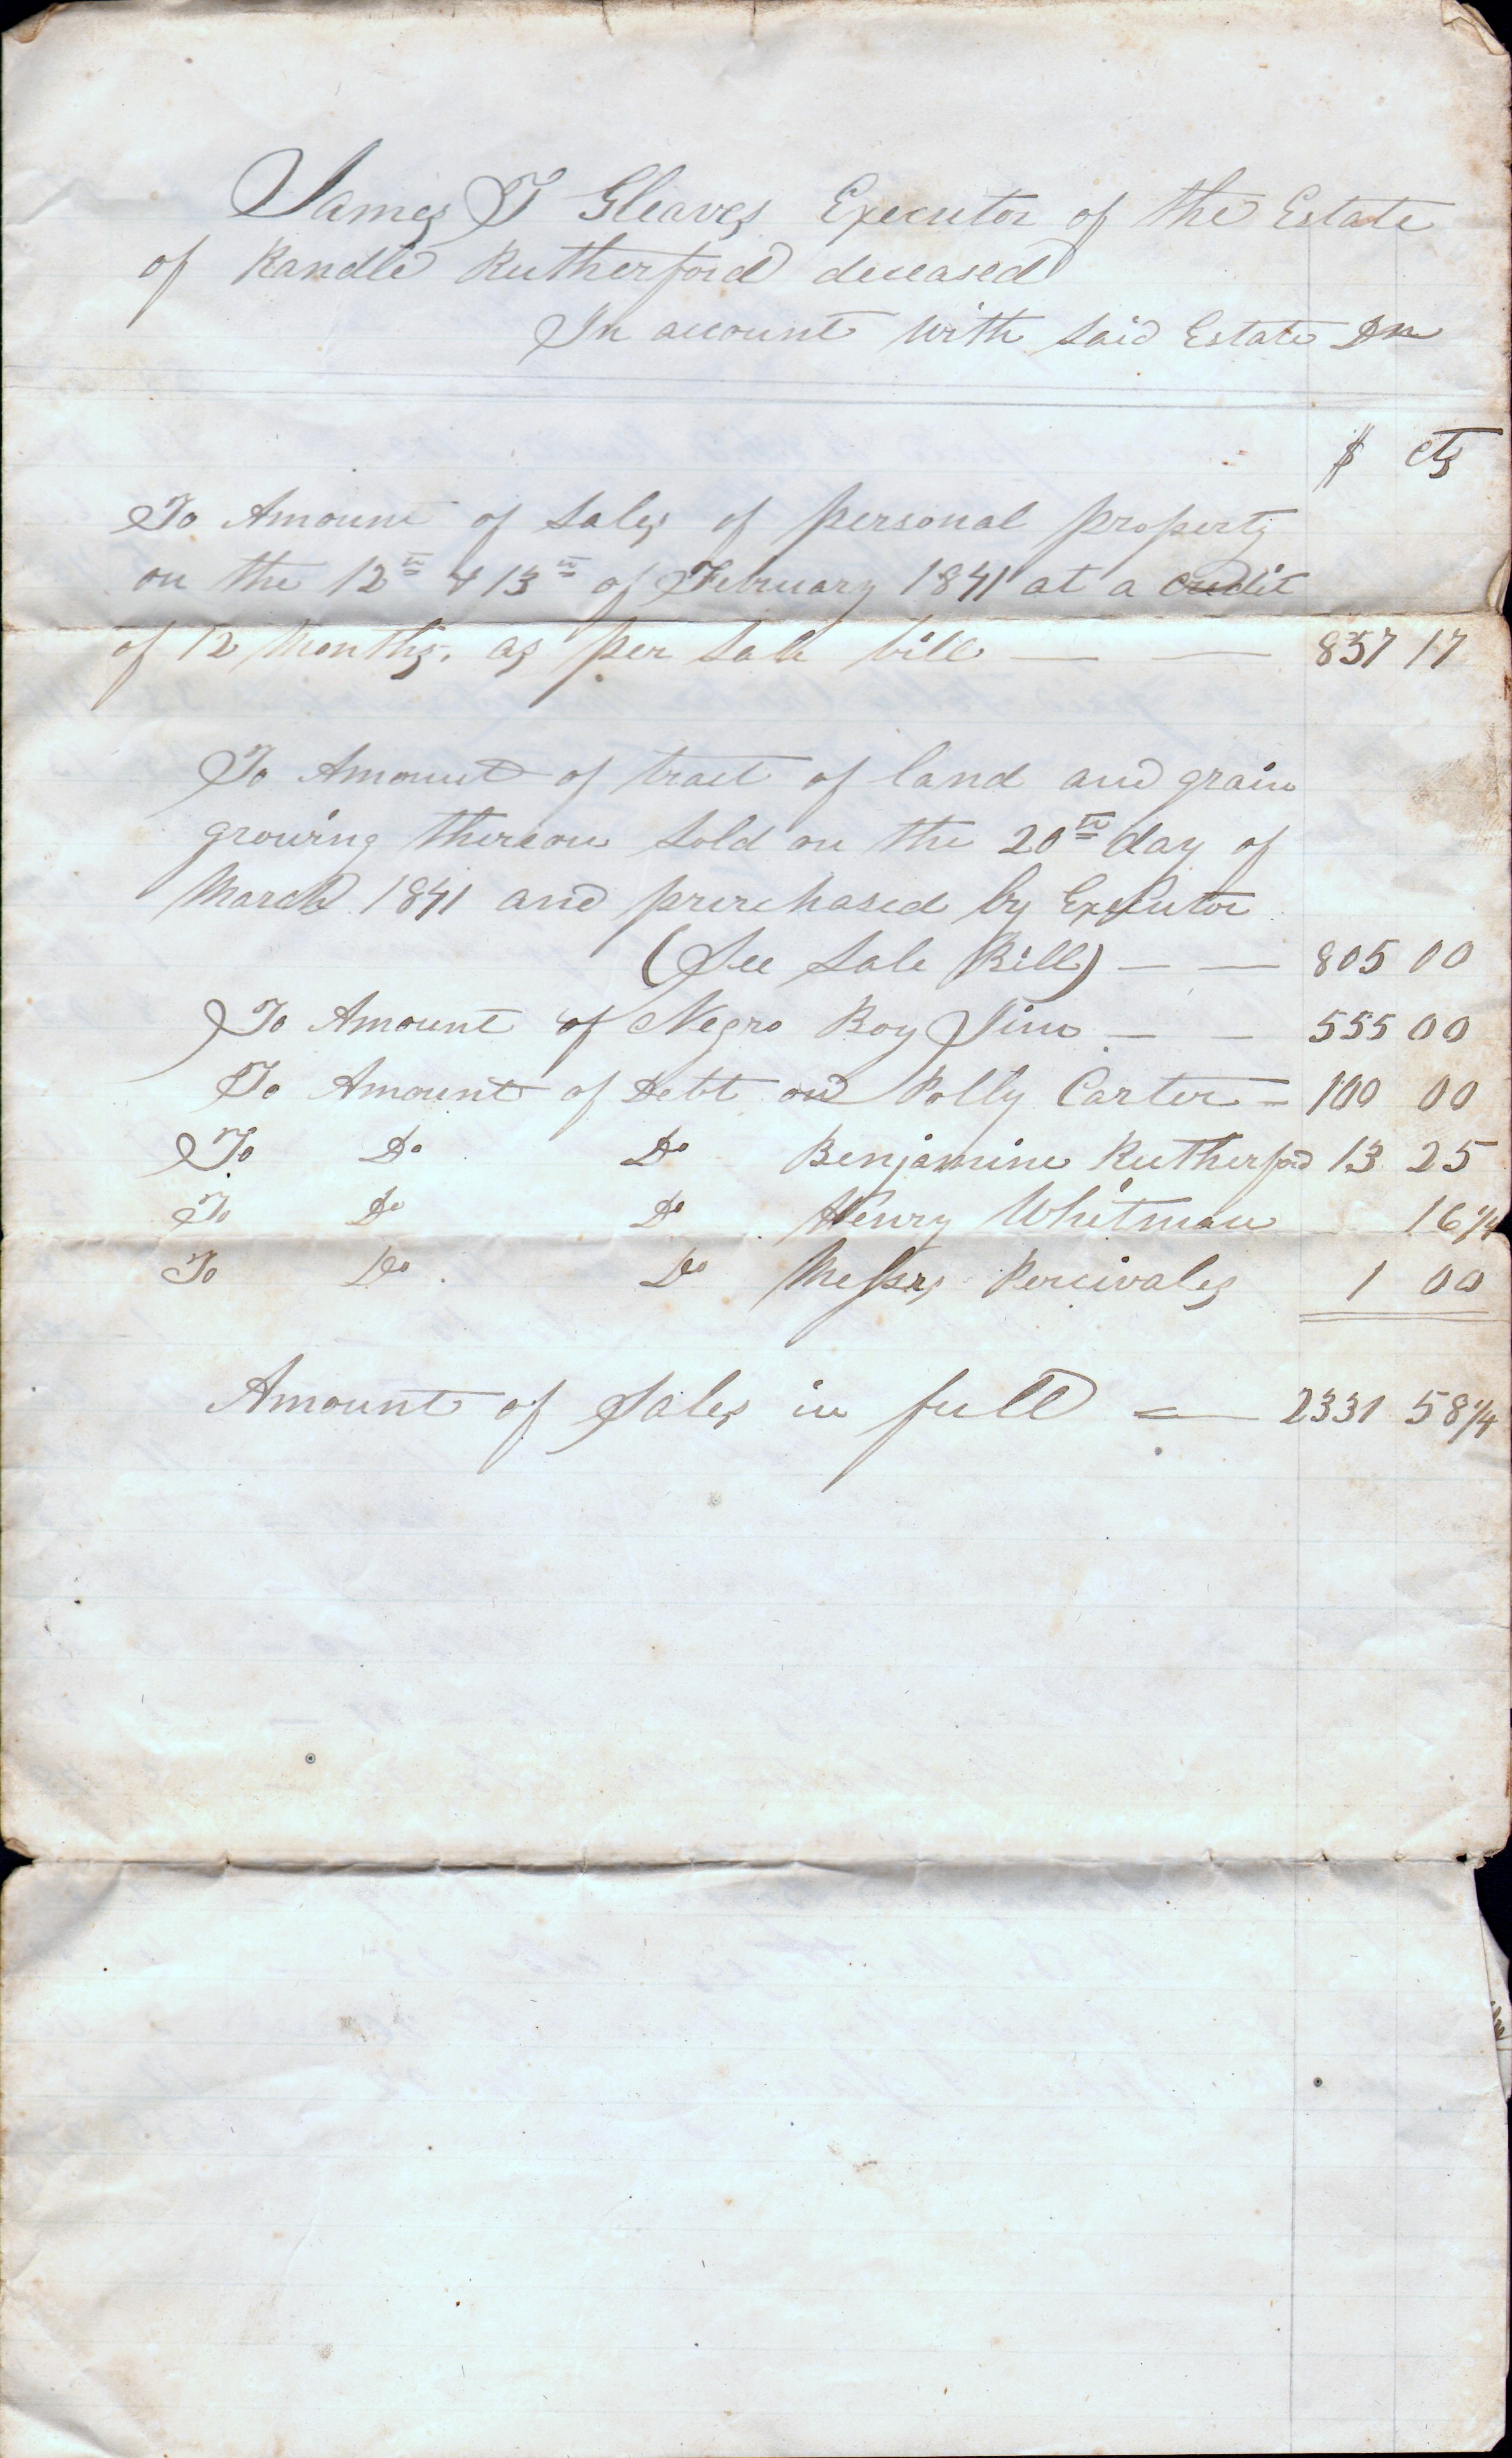 James T Gleaves Executor of the Estate
of Randle Rutherford deceased
In account with said Estate Dr
$ cts
To Amount of Sales of personal property
on the 12th & 13th of February 1841 at a credit
of 12 Months, as per Sale bill — — 857 17
To Amount of tract of land and grain
growing thereon sold on the 20th day of
March 1841 and purchased by Executor
(See Sale Bill) — — 805 00
To Amount of Negro Boy Jim — — 555 00
To Amount of Debt on Polly Carter = 100 00
To Do Do Benjamine Rutherford 13 25
To Do Do Henry Whitman 16 1/4
To Do Do Messrs Percivales 1 00
Amount of Sales in full = — 2331 58 1/4